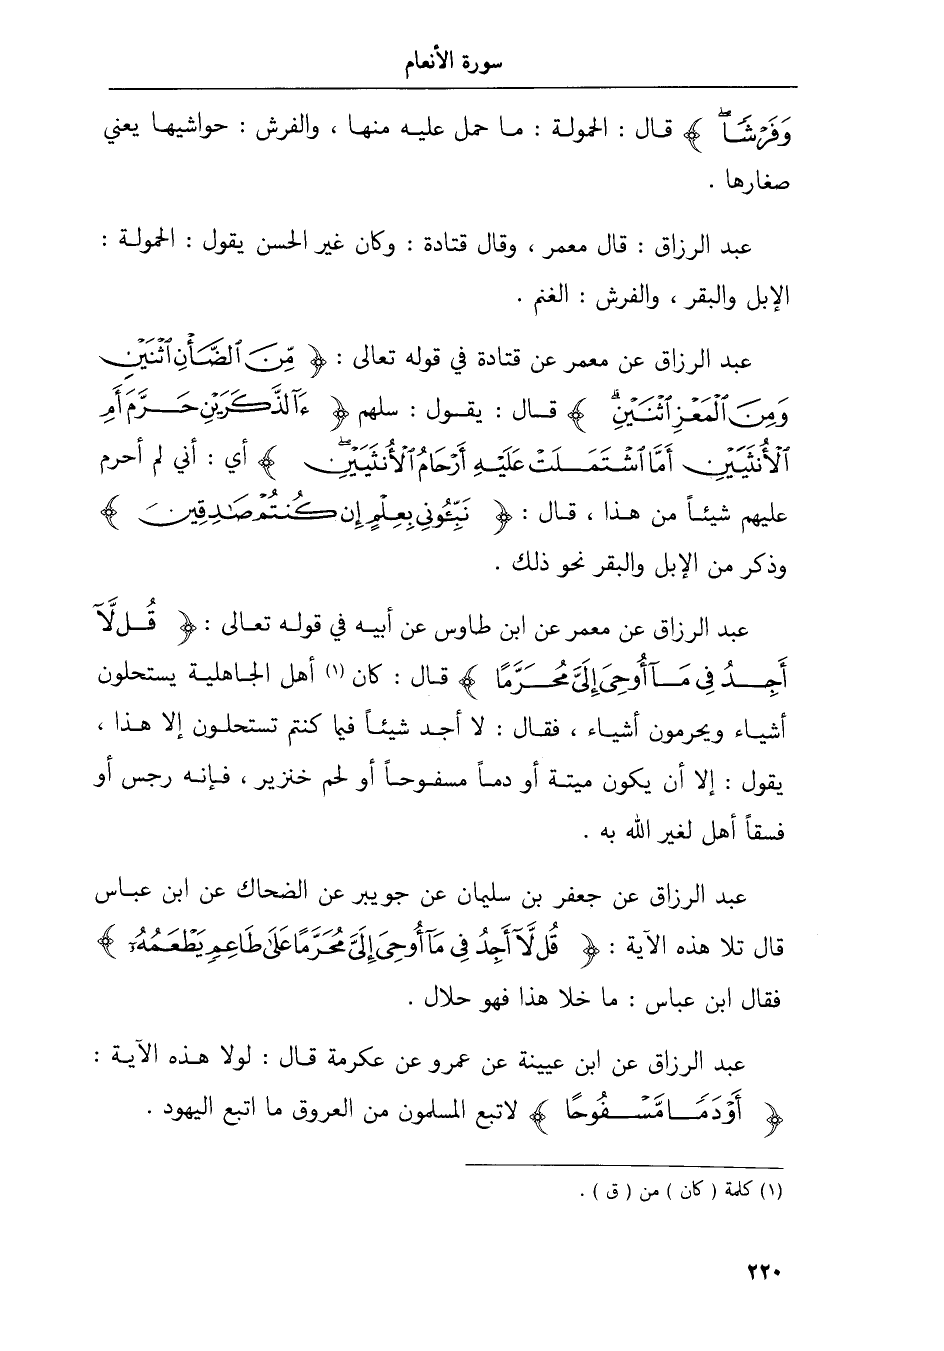 سورة الأنعام
وَفَرْشًا ﴾ قال : الحمولة : ما حمل عليه منها ، والفرش : حواشيها يعني
صغارها .
عبد الرزاق : قال معمر ، وقال قتادة : وكان غير الحسن يقول : الحمولة :
الإبل والبقر ، والفرش : الغنم .
عبد الرزاق عن معمر عن قتادة في قوله تعالى : ﴿ مِّنَ ٱلضَّأْنِ ٱثْنَيْنِ
وَمِنَ ٱلْمَعْزِ ٱثْنَيْنِ ﴾ قال : يقول : سلهم ﴿ ءَآلذَّكَرَيْنِ حَرَّمَ أَمِ
ٱلْأُنثَيَيْنِ أَمَّا ٱشْتَمَلَتْ عَلَيْهِ أَرْحَامُ ٱلْأُنثَيَيْنِ ﴾ أي : أني لم أحرم
عليهم شيئاً من هذا ، قال : ﴿ نَبِّـُٔونِى بِعِلْمٍ إِن كُنتُمْ صَـٰدِقِينَ ﴾
وذكر من الإبل والبقر نحو ذلك .
عبد الرزاق عن معمر عن ابن طاوس عن أبيه في قوله تعالى : ﴿ قُل لَّآ
أَجِدُ فِى مَآ أُوحِىَ إِلَىَّ مُحَرَّمًا ﴾ قال : كان (١) أهل الجاهلية يستحلون
أشياء ويحرمون أشياء ، فقال : لا أجد شيئاً فيما كنتم تستحلون إلا هذا ،
يقول : إلا أن يكون ميتة أو دماً مسفوحاً أو لحم خنزير ، فإنه رجس أو
فسقاً أهل لغير الله به .
عبد الرزاق عن جعفر بن سليمان عن جويبر عن الضحاك عن ابن عباس
قال تلا هذه الآية : ﴿ قُل لَّآ أَجِدُ فِى مَآ أُوحِىَ إِلَىَّ مُحَرَّمًا عَلَىٰ طَاعِمٍ يَطْعَمُهُۥٓ ﴾
فقال ابن عباس : ما خلا هذا فهو حلال .
عبد الرزاق عن ابن عيينة عن عمرو عن عكرمة قال : لولا هذه الآية :
﴿ أَوْ دَمًا مَّسْفُوحًا ﴾ لاتبع المسلمون من العروق ما اتبع اليهود .
(١) كلمة ( كان ) من ( ق ) .
٢٢٠